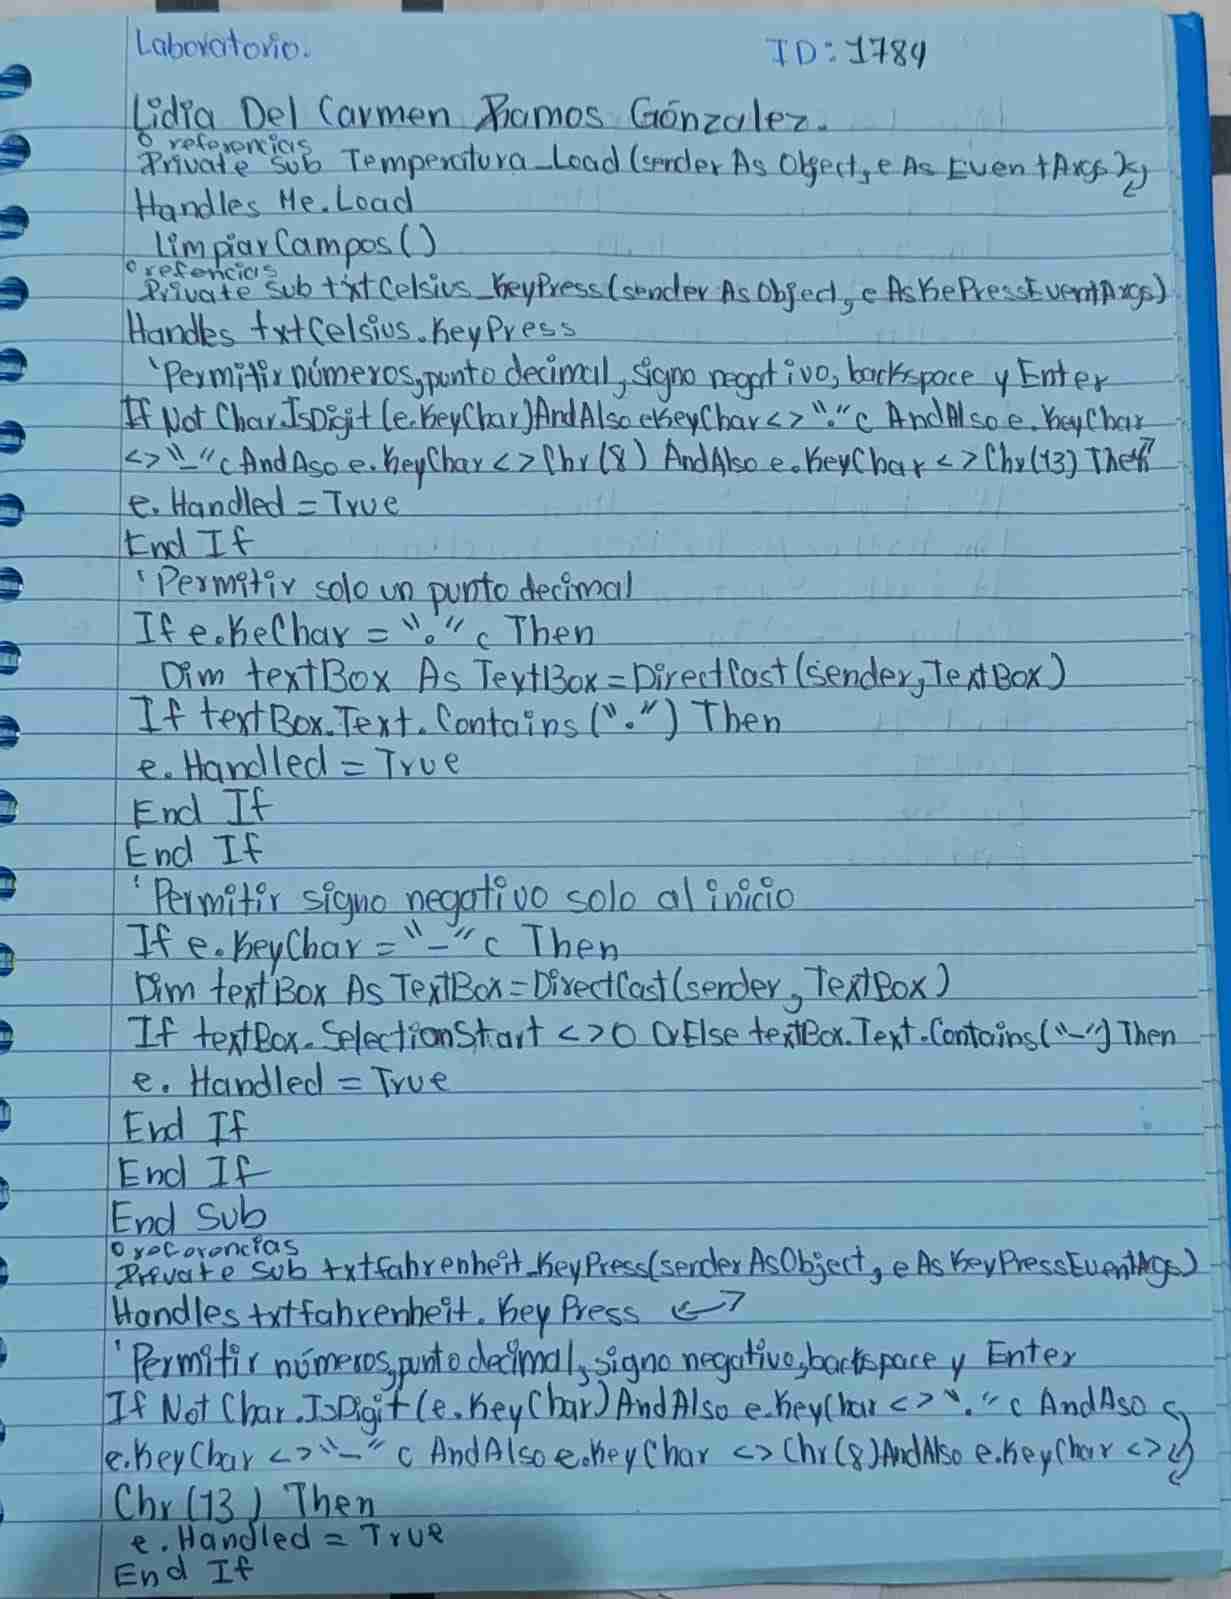 Laboratorio. ID: 1784
Lidia Del Carmen Ramos Gónzalez.
0 referencias
Private Sub Temperatura_Load(sender As Object, e As EventArgs)
Handles Me.Load
LimpiarCampos()
0 refencias
Private Sub txtCelsius_KeyPress(sender As Object, e As KePressEventArgs)
Handles txtCelsius.KeyPress
'Permitir números, punto decimal, signo negativo, backspace y Enter
If Not Char.IsDigit(e.KeyChar) AndAlso eKeyChar <> "."c AndAlso e.KeyChar
<> "-"c AndAso e.KeyChar <> Chr(8) AndAlso e.KeyChar <> Chr(13) Then
e.Handled = True
End If
'Permitir solo un punto decimal
If e.KeChar = "."c Then
Dim textBox As TextBox = DirectCast(sender, TextBox)
If textBox.Text.Contains(".") Then
e.Handled = True
End If
End If
'Permitir signo negativo solo al inicio
If e.KeyChar = "-"c Then
Dim textBox As TextBox = DirectCast(sender, TextBox)
If textBox.SelectionStart <> 0 OrElse textBox.Text.Contains("-") Then
e.Handled = True
End If
End If
End Sub
0
Private Sub txtfahrenheit_KeyPress(sender As Object, e As KeyPressEventArgs)
Handles txtfahrenheit.KeyPress
'Permitir números, punto decimal, signo negativo, backspace y Enter
If Not Char.IsDigit(e.KeyChar) AndAlso e.KeyChar <> "."c AndAso
e.KeyChar <> "-"c AndAlso e.KeyChar <> Chr(8) AndAlso e.KeyChar <>
Chr(13) Then
e.Handled = True
End If